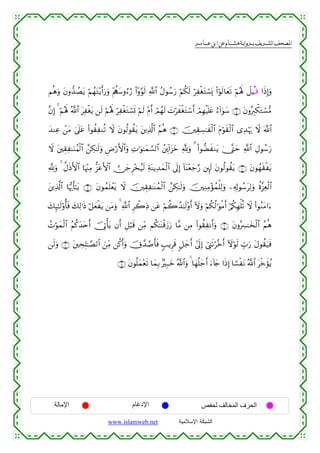 المصحف الشريف برواية هشام عن ابن عامر
وَإِذَا قِيلَ لَهُمْ تَعَالَوْا۟ يَسْتَغْفِرْ لَكُمْ رَسُولُ ٱللَّهِ لَوَّوْا۟ رُءُوسَهُمْ وَرَأَيْتَهُمْ يَصُدُّونَ وَهُم
مُّسْتَكْبِرُونَ ۝ سَوَآءٌ عَلَيْهِمْ أَسْتَغْفَرْتَ لَهُمْ أَمْ لَمْ تَسْتَغْفِرْ لَهُمْ لَن يَغْفِرَ ٱللَّهُ لَهُمْ ۚ إِنَّ
ٱللَّهَ لَا يَهْدِى ٱلْقَوْمَ ٱلْفَـٰسِقِينَ ۝ هُمُ ٱلَّذِينَ يَقُولُونَ لَا تُنفِقُوا۟ عَلَىٰ مَنْ عِندَ
رَسُولِ ٱللَّهِ حَتَّىٰ يَنفَضُّوا۟ ۗ وَلِلَّهِ خَزَآئِنُ ٱلسَّمَـٰوَٰتِ وَٱلْأَرْضِ وَلَـٰكِنَّ ٱلْمُنَـٰفِقِينَ لَا
يَفْقَهُونَ ۝ يَقُولُونَ لَئِن رَّجَعْنَآ إِلَى ٱلْمَدِينَةِ لَيُخْرِجَنَّ ٱلْأَعَزُّ مِنْهَا ٱلْأَذَلَّ ۚ وَلِلَّهِ
ٱلْعِزَّةُ وَلِرَسُولِهِۦ وَلِلْمُؤْمِنِينَ وَلَـٰكِنَّ ٱلْمُنَـٰفِقِينَ لَا يَعْلَمُونَ ۝ يَـٰٓأَيُّهَا ٱلَّذِينَ
ءَامَنُوا۟ لَا تُلْهِكُمْ أَمْوَٰلُكُمْ وَلَآ أَوْلَـٰدُكُمْ عَن ذِكْرِ ٱللَّهِ ۚ وَمَن يَفْعَلْ ذَٰلِكَ فَأُو۟لَـٰٓئِكَ
هُمُ ٱلْخَـٰسِرُونَ ۝ وَأَنفِقُوا۟ مِن مَّا رَزَقْنَـٰكُم مِّن قَبْلِ أَن يَأْتِىَ أَحَدَكُمُ ٱلْمَوْتُ
فَيَقُولَ رَبِّ لَوْلَآ أَخَّرْتَنِىٓ إِلَىٰٓ أَجَلٍ قَرِيبٍ فَأَصَّدَّقَ وَأَكُن مِّنَ ٱلصَّـٰلِحِينَ ۝ وَلَن
يُؤَخِّرَ ٱللَّهُ نَفْسًا إِذَا جَآءَ أَجَلُهَا ۚ وَٱللَّهُ خَبِيرٌۢ بِمَا تَعْمَلُونَ ۝
الحرف المخالف لحفص الإدغام الإمالة
الشبكة الإسلامية www.islamweb.net